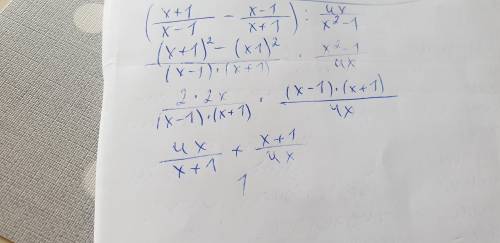 ( (x+1)/(x-1) - (x-1)/(x+1) ) : 4x/(x²-1)
((x+1)² - (x1)²)/((x-1)·(x+1)) · (x²-1)/4x
(2·2x)/((x-1)·(x+1)) · ((x-1)·(x+1))/4x
4x/(x+1) + (x+1)/4x
1